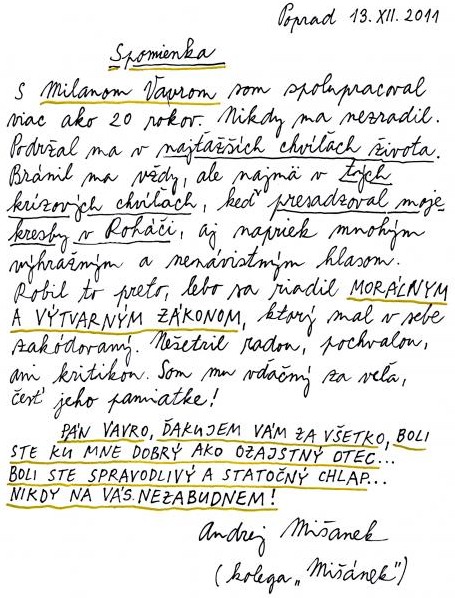 Poprad 13.XII.2011
Spomienka
S Milanom Vavrom som spolupracoval
viac ako 20 rokov. Nikdy ma nezradil.
Podržal ma v najťažších chvíľach života.
Bránil ma vždy, ale najmä v tých
krízových chvíľach, keď presadzoval moje
kresby v Roháči, aj napriek mnohým
výhražným a nenávistným hlasom.
Robil to preto, lebo sa riadil MORÁLNYM
A VÝTVARNÝM ZÁKONOM, ktorý mal v sebe
zakódovaný. Nešetril radou, pochvalou,
ani kritikou. Som mu vďačný za veľa,
česť jeho pamiatke!
PÁN VAVRO, ĎAKUJEM VÁM ZA VŠETKO, BOLI
STE KU MNE DOBRÝ AKO OZAJSTNÝ OTEC...
BOLI STE SPRAVODLIVÝ A STATOČNÝ CHLAP...
NIKDY NA VÁS NEZABUDNEM!
Andrej Mišanek
(kolega „Mišánek")